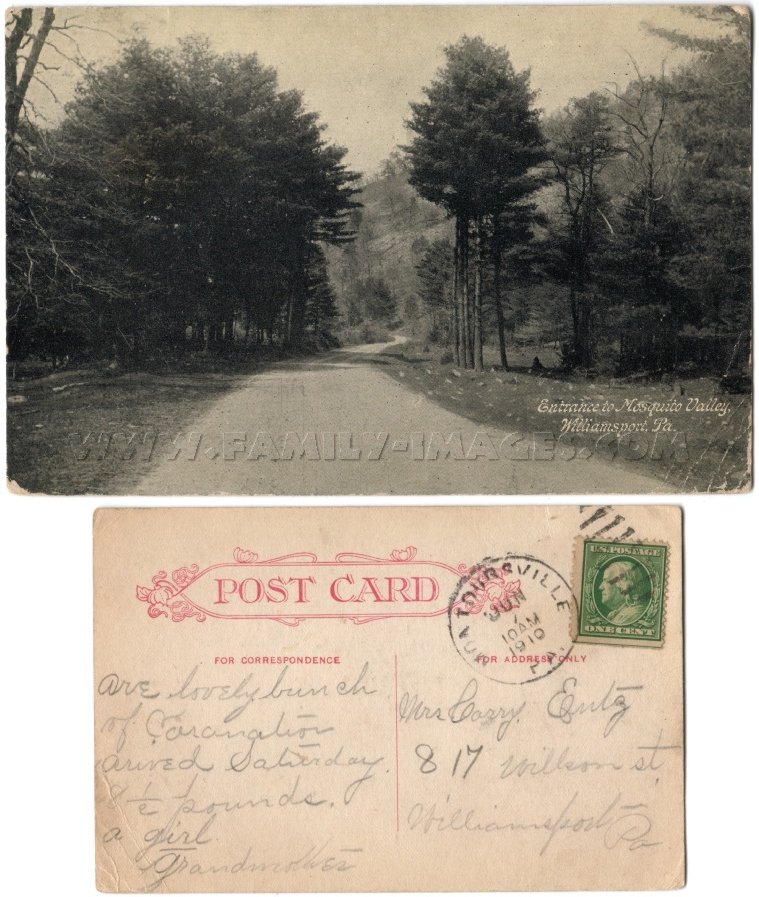 Entrance to Mosquito Valley,
Williamsport, Pa.
WWW.FAMILY-IMAGES.COM
POST CARD
MONTOURSVILLE
JUN
7
10 AM
1910
PA.
U.S. POSTAGE
ONE CENT
FOR CORRESPONDENCE
FOR ADDRESS ONLY
are lovely bunch
of Coronation
arived Saturday.
8 ½ pounds.
a girl
Grandmother
Mrs Carry Entz
817 Willson st
Williamsport
Pa